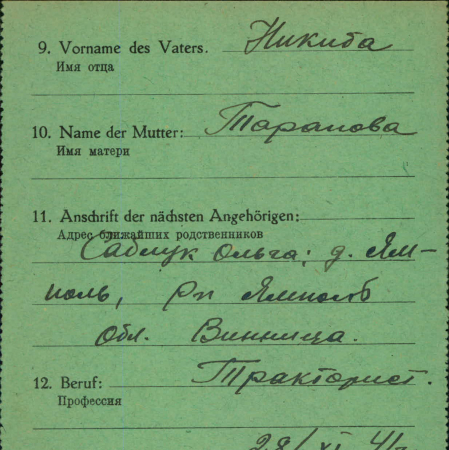 9. Vorname des Vaters. Никита
Имя отца
10. Name der Mutter: Тарапова
Имя матери
11. Anschrift der nächsten Angehörigen:
Адрес ближайших родственников
Саблук Ольга; д. Ям-
поль, рн Ямполь
Обл. Винница.
12. Beruf: Тракторист.
Профессия
28/XI 41г.